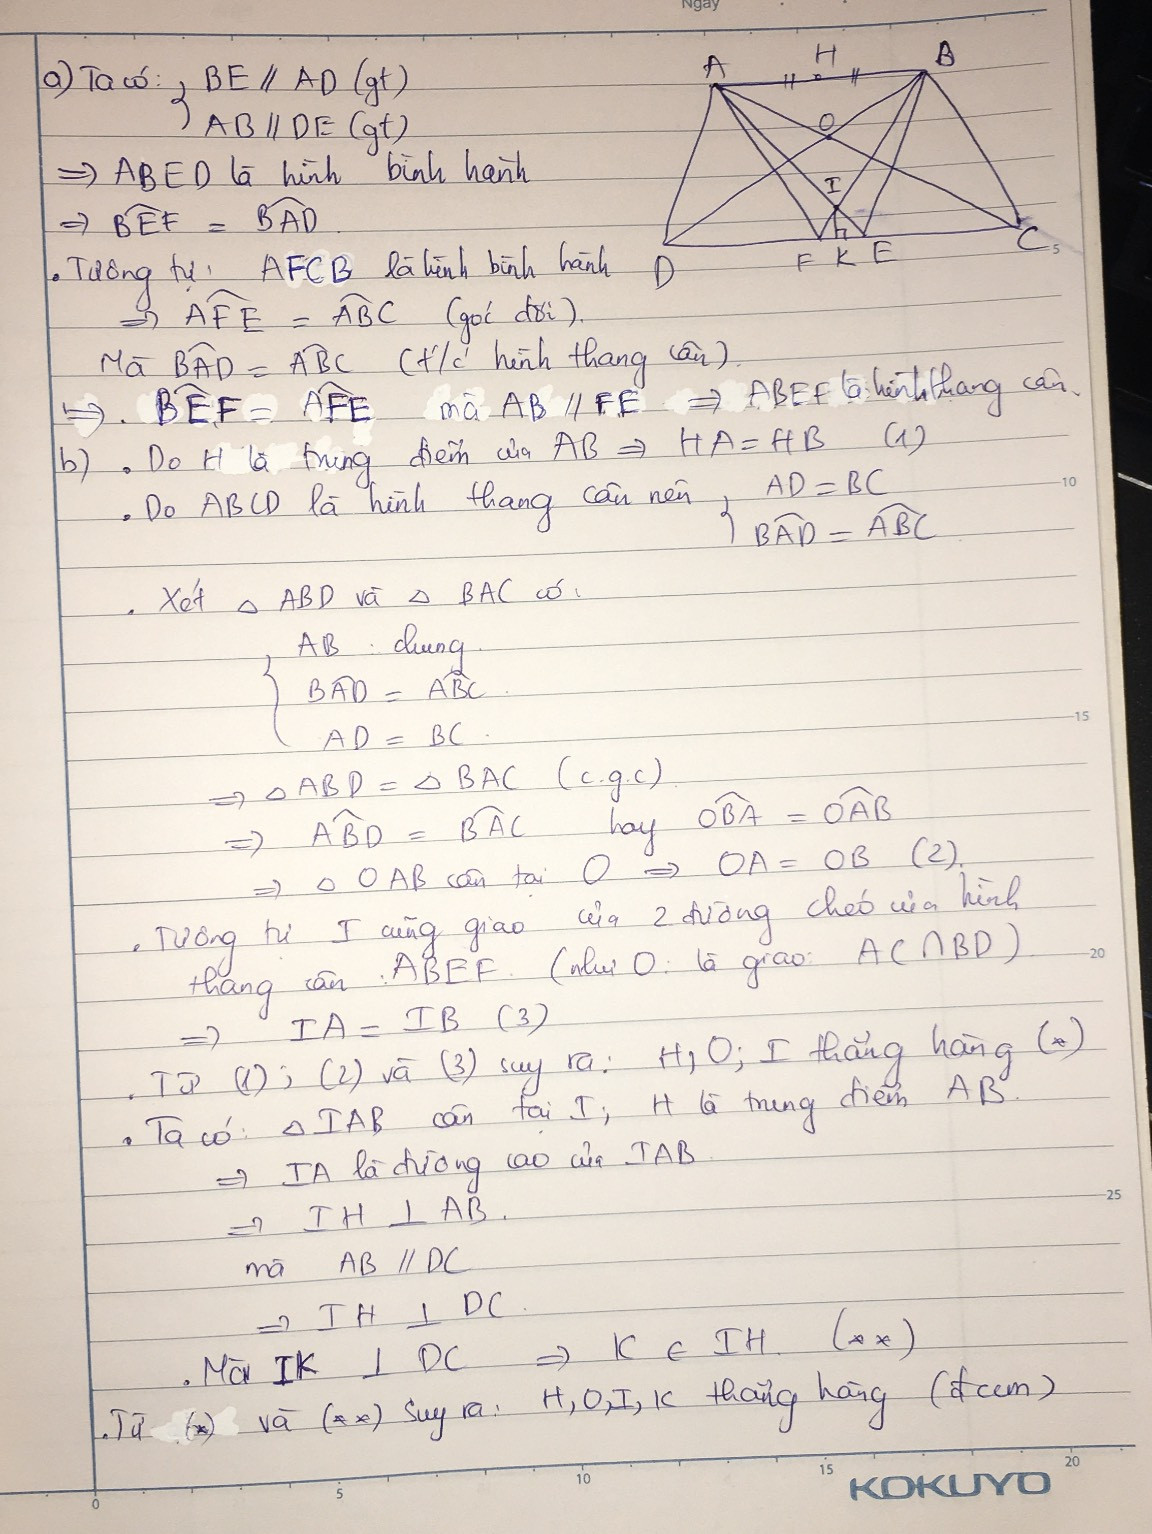 Ngày
a) Ta có: { BE // AD (gt)
AB // DE (gt)
=> ABED là hình bình hành
=> BÊF = BÂD.
. Tương tự: AFCB là hình bình hành
=> AF̂E = AB̂C (góc đối).
Mà BÂD = AB̂C (t/c hình thang cân).
=> . BÊF = AF̂E mà AB // FE => ABEF là hình thang cân.
b) . Do H là trung điểm của AB => HA = HB (1)
. Do ABCD là hình thang cân nên { AD = BC
BÂD = AB̂C
. Xét △ ABD và △ BAC có:
{ AB chung
BÂD = AB̂C.
AD = BC.
=> △ ABD = △ BAC (c.g.c)
=> AB̂D = BÂC hay OB̂A = OÂB
=> △ OAB cân tại O => OA = OB (2).
. Tương tự I cũng giao của 2 đường chéo của hình
thang cân ABEF. (như O là giao: AC ∩ BD)
=> IA = IB (3)
. Từ (1); (2) và (3) suy ra: H, O; I thẳng hàng (*)
. Ta có: △ IAB cân tại I; H là trung điểm AB.
=> IA là đường cao của IAB
=> IH ⊥ AB.
mà AB // DC
=> IH ⊥ DC.
. Mà IK ⊥ DC => K ∈ IH. (**)
. Từ (*) và (**) suy ra: H, O, I, K thẳng hàng (đccm)
A H B
O
I
D F K E C
5
10
15
20
25
0 5 10 15 20
KOKUYO